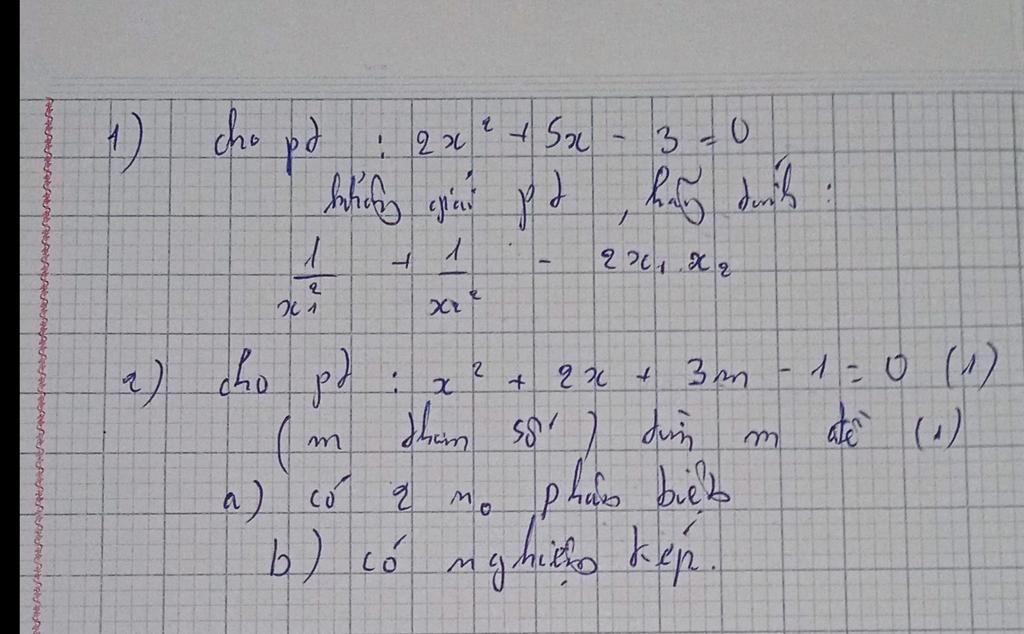 1) cho pt : 2x² + 5x - 3 = 0
không giải pt , hãy tính :
1/x₁² + 1/x₂² - 2x₁.x₂
2) cho pt : x² + 2x + 3m - 1 = 0 (1)
(m tham số) tìm m để (1)
a) có 2 n₀ phân biệt
b) có nghiệm kép.